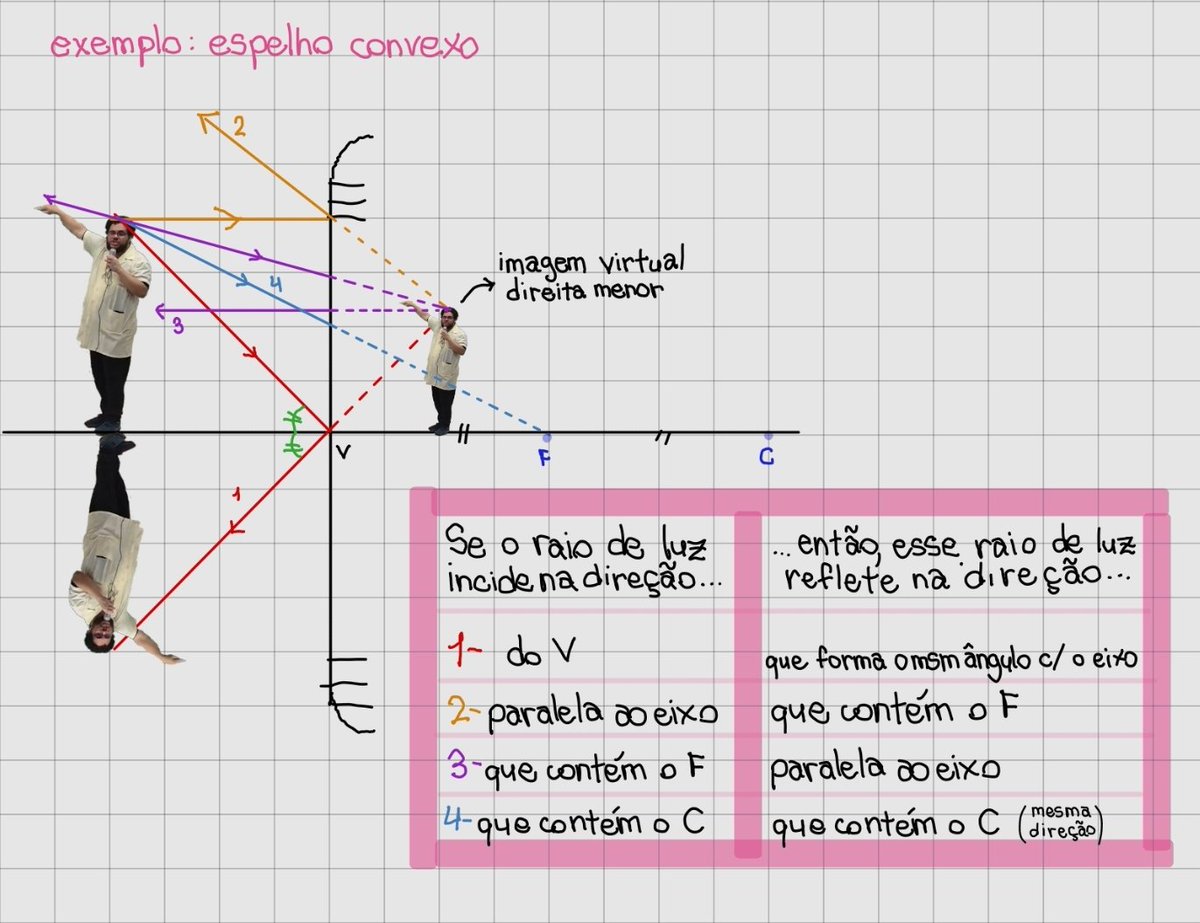 exemplo: espelho convexo
2
imagem virtual
direita menor
4
3
V
F
C
1
Se o raio de luz
incide na direção...
...então, esse raio de luz
reflete na direção...
1- do V
que forma o msm ângulo c/ o eixo
2- paralela ao eixo
que contém o F
3- que contém o F
paralela ao eixo
4- que contém o C
que contém o C (mesma direção)